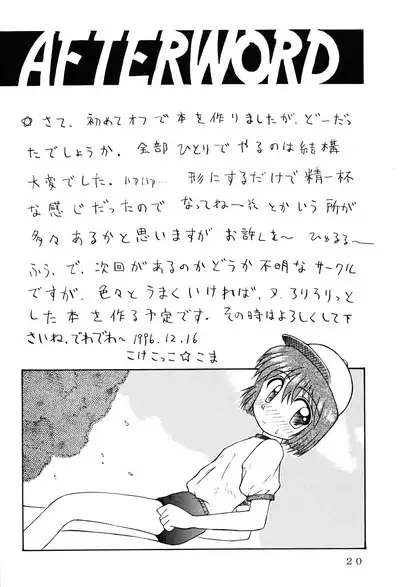 AFTERWORD
☆さて、初めてオフで本を作りましたが、どーだっ
たでしょうか。全部ひとりでやるのは結構
大変でした。ハァハァ… 形にするだけで精一杯
な感じだったので なってねーぞ とかいう所が
多々あるかと思いますが お許しを〜 ひゅるる〜
ふう。で、次回があるのかどうか不明なサークル
ですが、色々とうまくいければ、又、ろりろりっと
した本を作る予定です。その時はよろしくして下
さいね。でわでわ〜 1996.12.16
こけこっこ☆こま
20